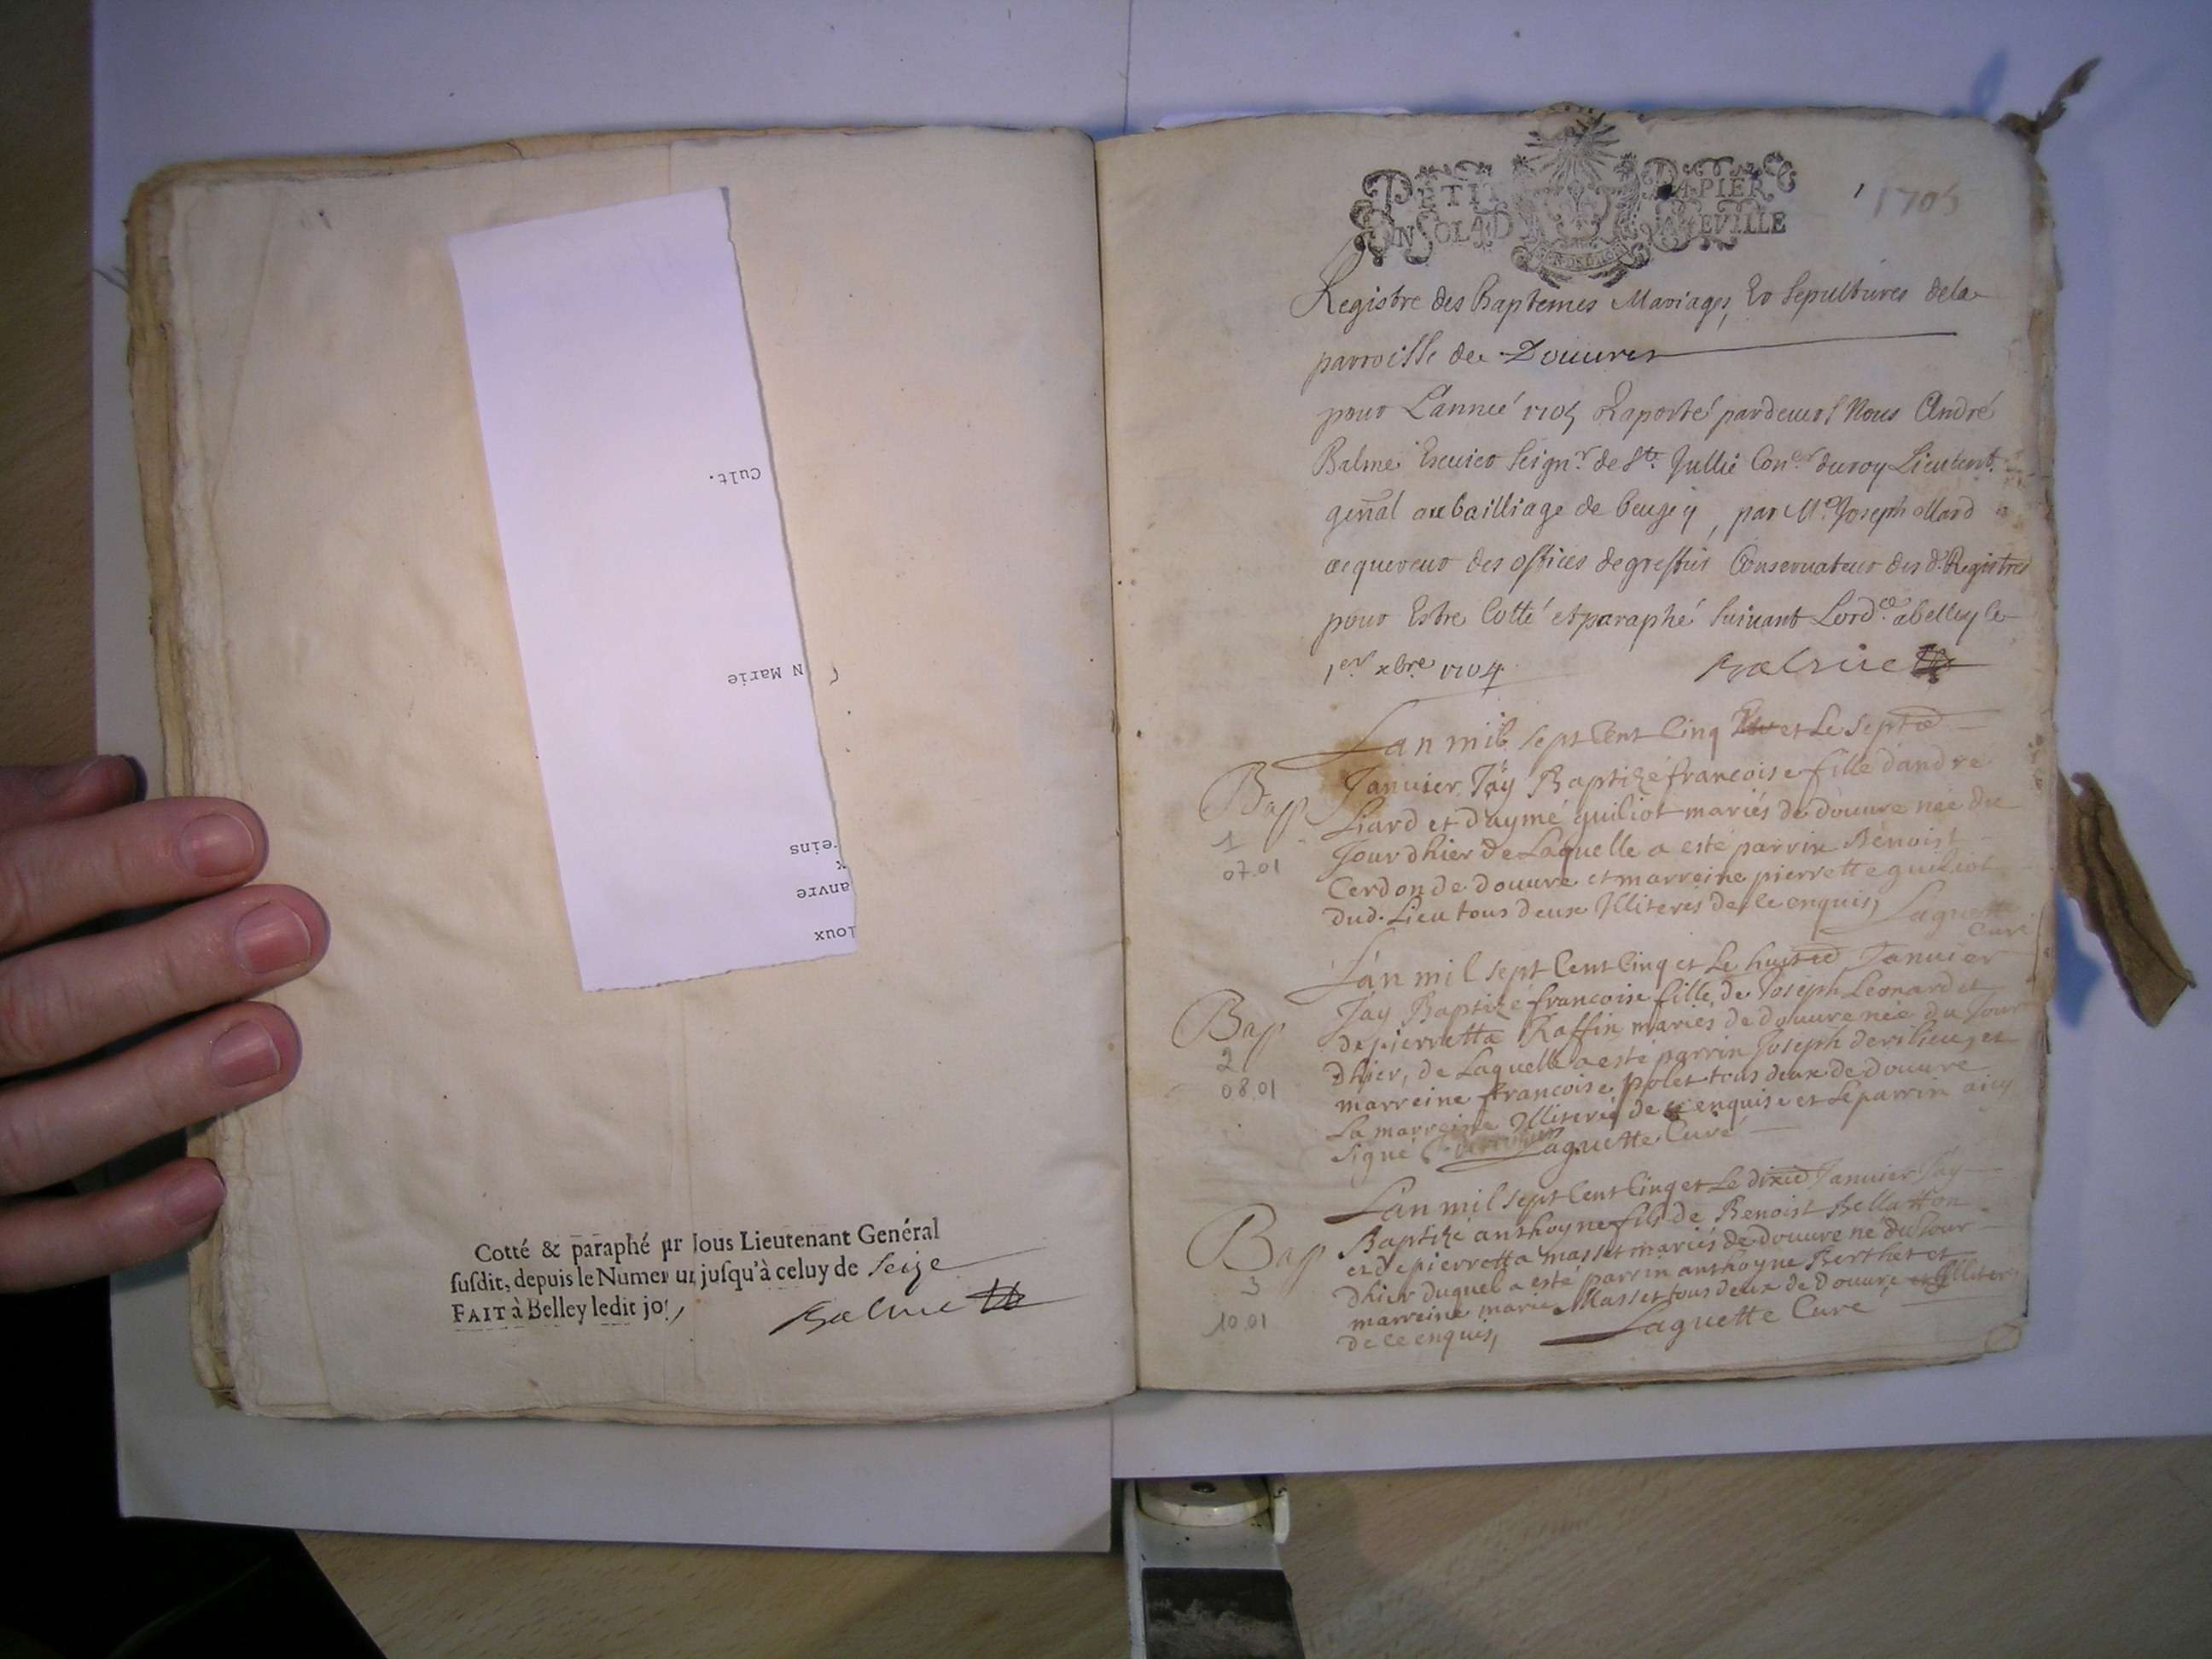 Cult.
N Marie
reins
x
anvre
loux
Cotté & paraphé pr Nous Lieutenant Genéral
susdit, depuis le Numero un jusqu'à celuy de Seize
FAIT à Belley ledit jour
Balme
PETIT PAPIER
UN SOL 4 D LA FEVILLE
1705
Registre des Baptemes Mariages, Et Sepultures dela
parroisse de Douures
pour L'anneé 1705 Raporté pardeuant Nous André
Balme Escuier Seign.r de S.te Jullie Con.er du roy Lieutent.
genal au bailliage de beugey, par M.e Joseph ollard
acquereur des offices de greffier Conseruateur des d. Registres
pour Estre Cotté et paraphé Suiuant Lord.ce a belley le
1er xbre 1704 Balme
Lan mil sept Cent Cinq et Le Septe
Bap Januier Jäy Baptizé francoise fille dandre
Liard et d'aymé guiliot mariés de douure neé du
1 Jour dhier de Laquelle a esté parrin Benoist
07.01 Cerdon de douure et marreine pierrette guiliot
dud. Lieu tous deux Illiteres de ce enquis, Laguette
Curé
Lan mil sept Cent Cinq et Le huitie Januier
Bap Jay Baptizé francoise fille de Joseph Leonard et
de pierretta Raffin mariés de douure neé du Jour
2 Dhier, de Laquelle a esté parrin Joseph derilieuz et
08.01 marreine francoise polet tous deux de douure
La marreine Illiteré de ce enquise et Le parrin aicy
signé Laguette Curé
Lan mil sept Cent Cinq et Le dixie Januier Jay
Bap Baptizé anthoyne fils de Benoist Bellatton
et de pierretta masset mariés de douure né du Jour
3 Dhier duquel a esté parrin anthoyne Berthet et
10.01 marreine marie Masset tous deux de Douure et Illiteres
de ce enquis, Laguette Curé